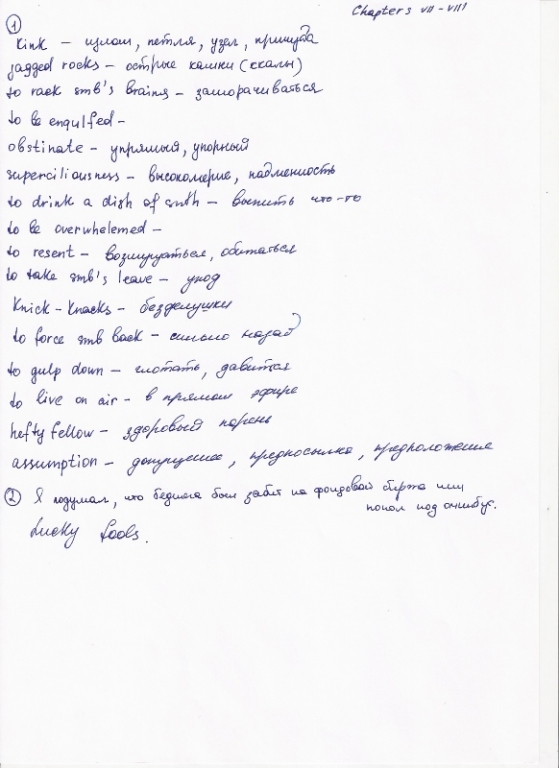 Chapters VII - VIII
①
kink – излом, петля, узел, причуда
jagged rocks – острые камни (скалы)
to rack smb's brains – заморачиваться
to be engulfed –
obstinate – упрямый, упорный
superciliousness – высокомерие, надменность
to drink a dish of smth – выпить что-то
to be overwhelemed –
to resent – возмущаться, обижаться
to take smb's leave – уход
Knick-knacks – безделушки
to force smb back – сильно назад
to gulp down – глотать, давится
to live on air – в прямом эфире
hefty fellow – здоровый парень
assumption – допущение, предпосылка, предположение
② Я подумал, что бедняга был забит на фондовой бирже или
попал под омнибус.
Lucky fools.